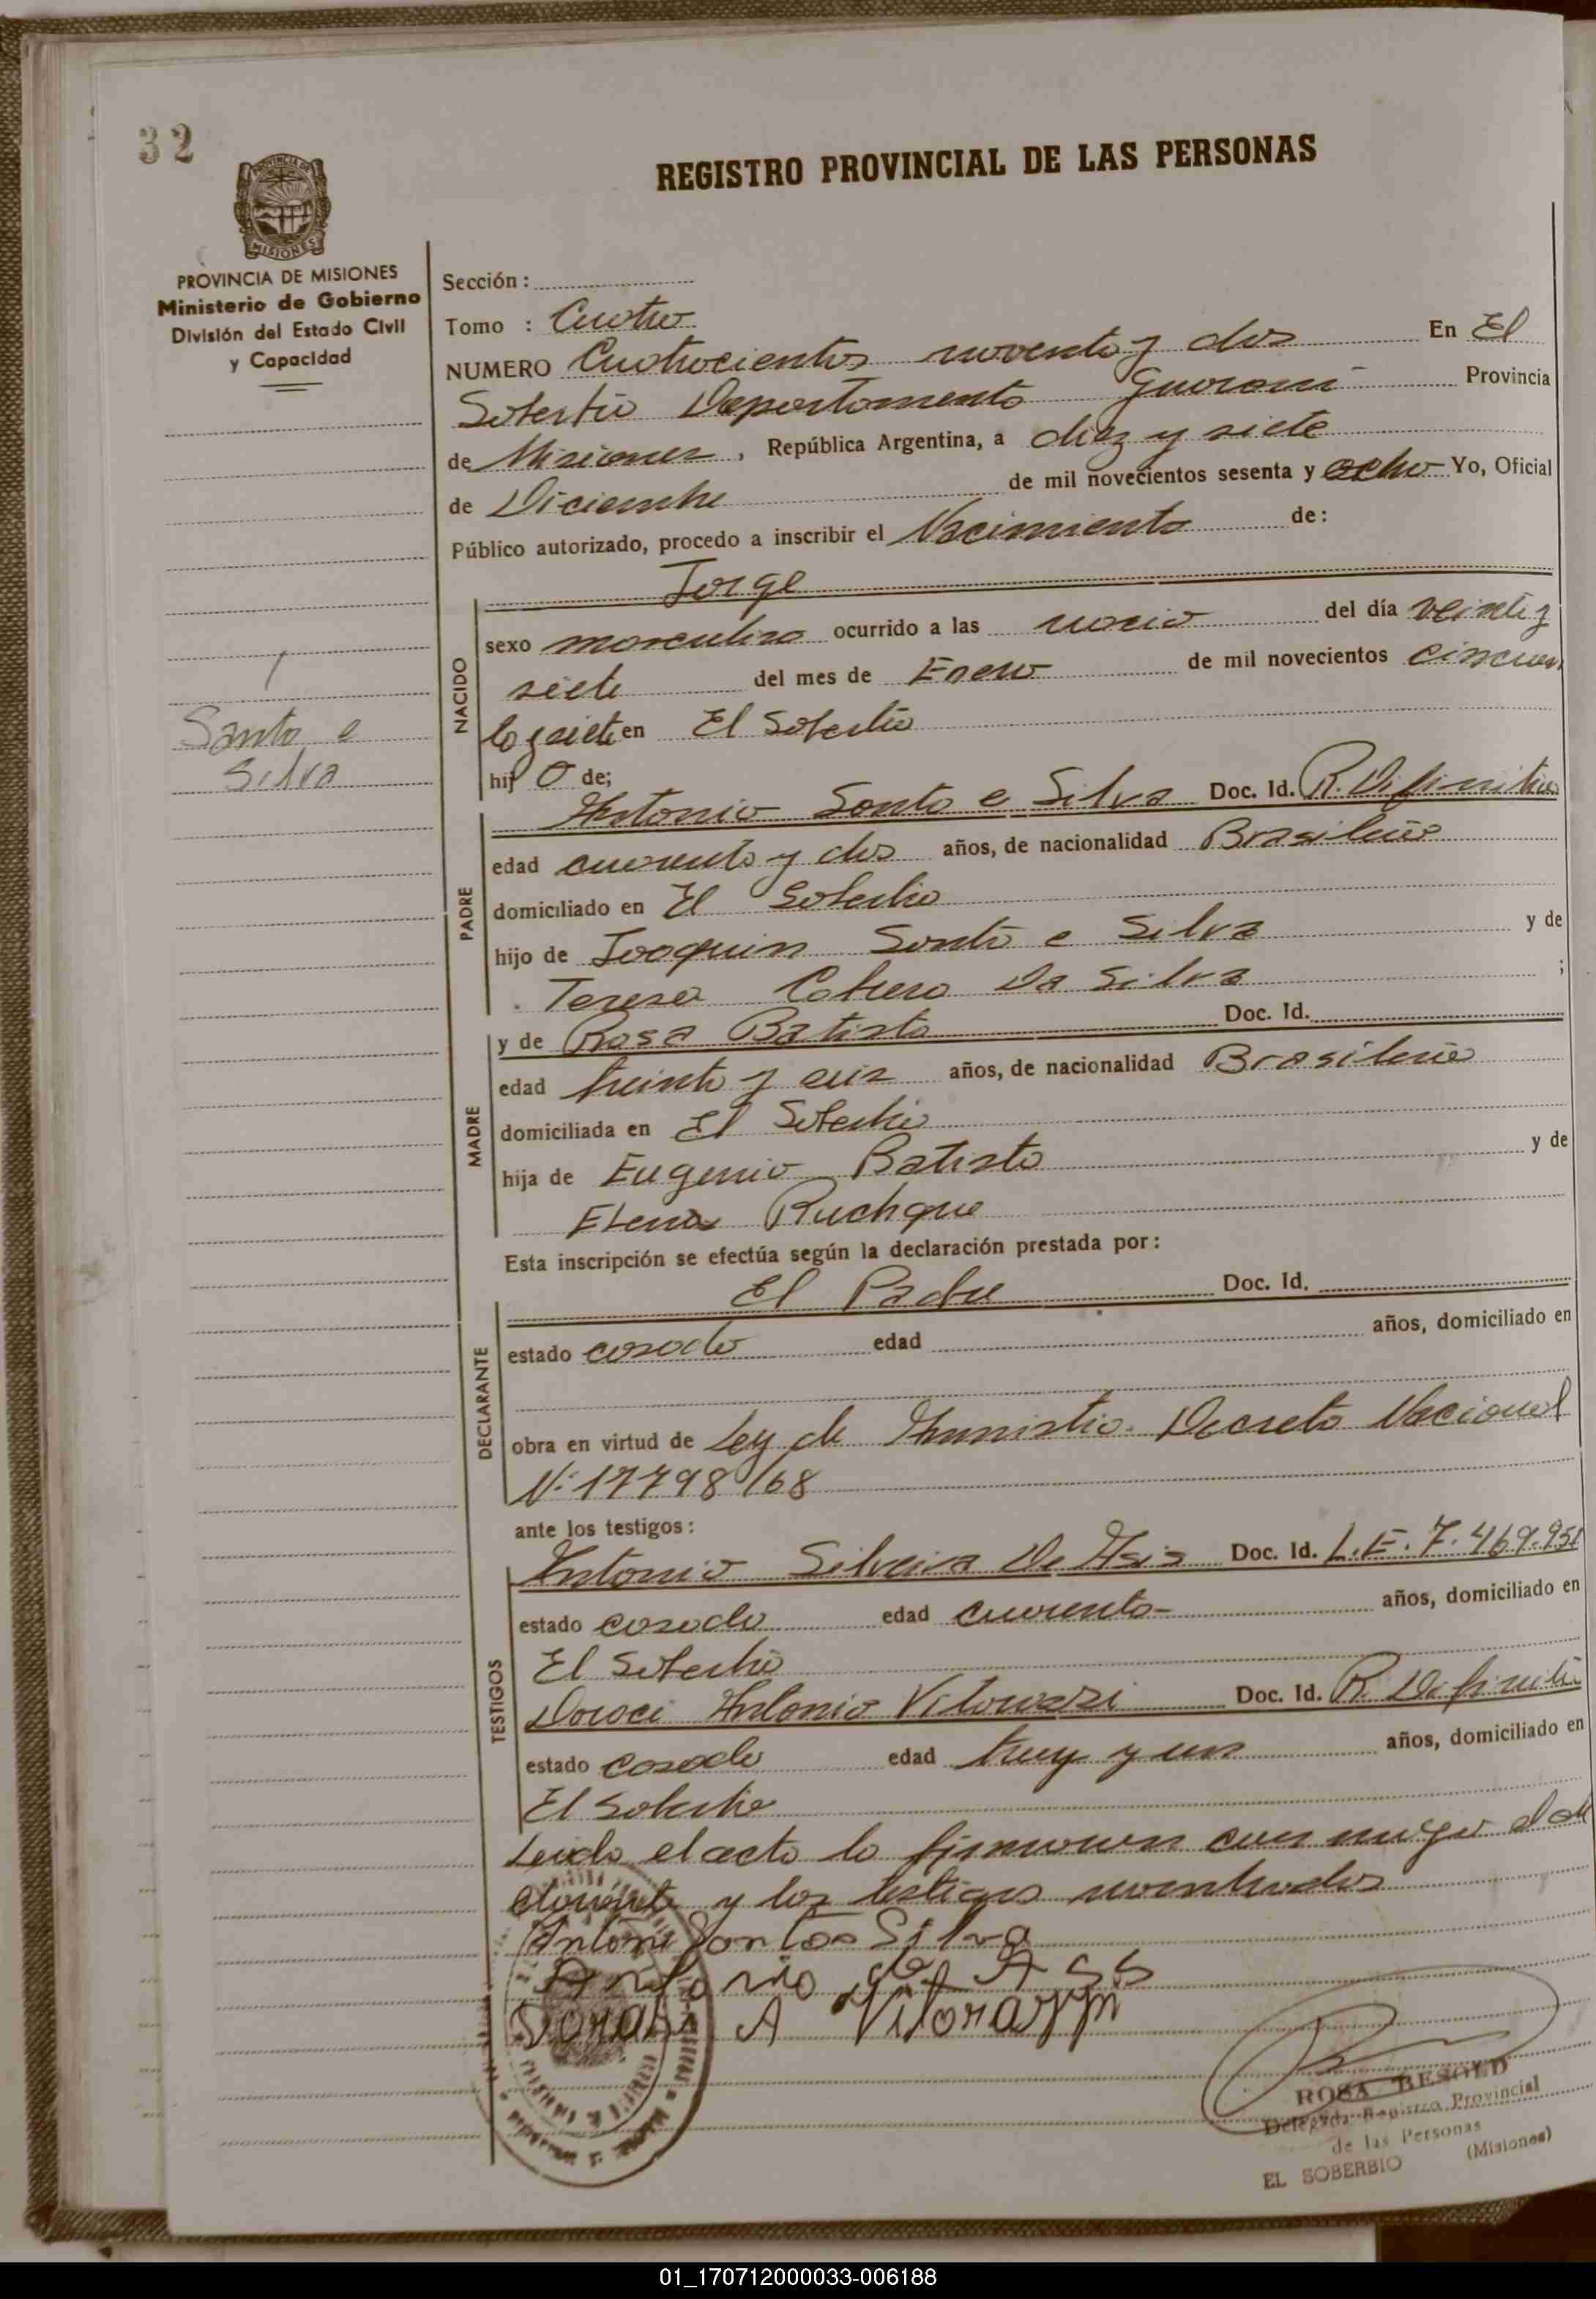 32
REGISTRO PROVINCIAL DE LAS PERSONAS
PROVINCIA DE MISIONES
MISIONES
PROVINCIA DE MISIONES
Ministerio de Gobierno
División del Estado Civil
y Capacidad
Santo e
Silva
Sección :
Tomo : Cuatro
NUMERO Cuatrocientos noventa y dos En El
Soberbio Departamento Guarani Provincia
de Misiones, República Argentina, a diez y siete
de Diciembre de mil novecientos sesenta y ocho Yo, Oficial
Público autorizado, procedo a inscribir el Nacimiento de:
Jorge
NACIDO
sexo masculino ocurrido a las del día veinte y
siete del mes de Enero de mil novecientos cincuen
ta y siete en El Soberbio
hij o de;
PADRE
Antonio Santo e Silva Doc. Id. R. Difinitiva
edad cuarenta y dos años, de nacionalidad Brasileño
domiciliado en El Soberbio
hijo de Joaquin Santo e Silva y de
Teresa Da Silva ;
MADRE
y de Rosa Batista Doc. Id.
edad treinta y seis años, de nacionalidad Brasileña
domiciliada en El Soberbio
hija de Eugenio Batista y de
Elena Ruchque
Esta inscripción se efectúa según la declaración prestada por :
DECLARANTE
El Padre Doc. Id.
estado casado edad años, domiciliado en
obra en virtud de Ley de Amnistia. Decreto Nacional
N: 17798/68
ante los testigos :
TESTIGOS
Antonio Silveira De Asis Doc. Id. L.E. 7.469.951
estado casado edad cuarenta- años, domiciliado en
El Soberbio
Antonio Doc. Id. R. Definitiva
estado casado edad y un años, domiciliado en
El Soberbio
Leida el acta la firmaron con migo el de
clarante y los testigos nombrados
Antonio Santos Silva
Antonio de Assis
A Vitorazzi
ROSA BESOLD
Delegada Registro Provincial
de las Personas
EL SOBERBIO (Misiones)
01_170712000033-006188